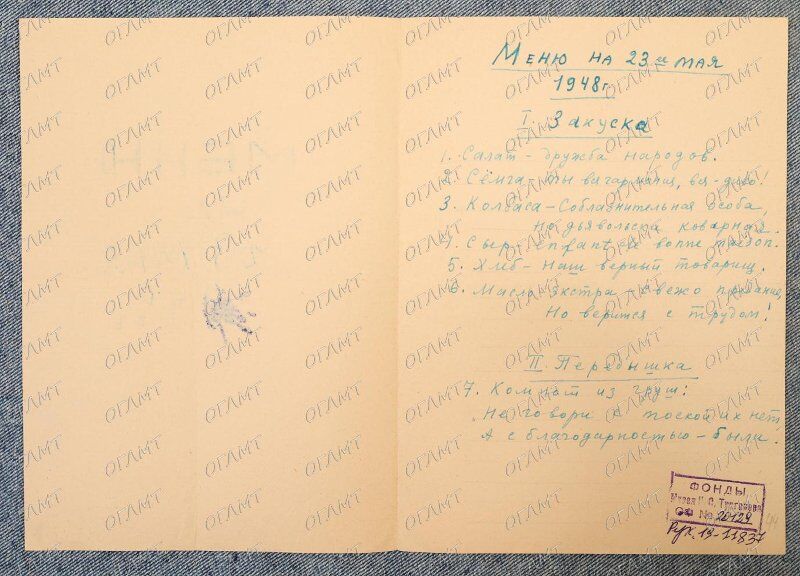 Меню на 23 е мая
1948 г.
I. Закуска
1. Салат - дружба народов.
2. Сёмга - ты вся гармония, вся - диво!
3. Колбаса - Соблазнительная особа,
Но дьявольски коварная.
4. Сыр - enfant de bonne maison.
5. Хлеб - наш верный товарищ.
6. Масло Экстра - свежо предание,
Но верится с трудом!
II. Передышка
7. Компот из груш:
Не говори с тоской их нет,
А с благодарностью - были.
ФОНДЫ
Музея И. С. Тургенева
ОФ № 20129
Рук. 13-11837
ОГЛМТ